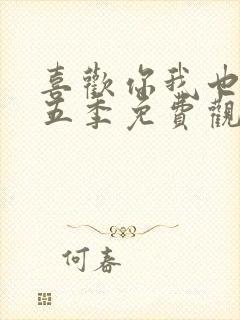 喜歡你我也
五季免費觀
何春